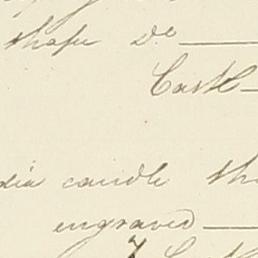 shape Do
Castle
dia candle sh
engraved